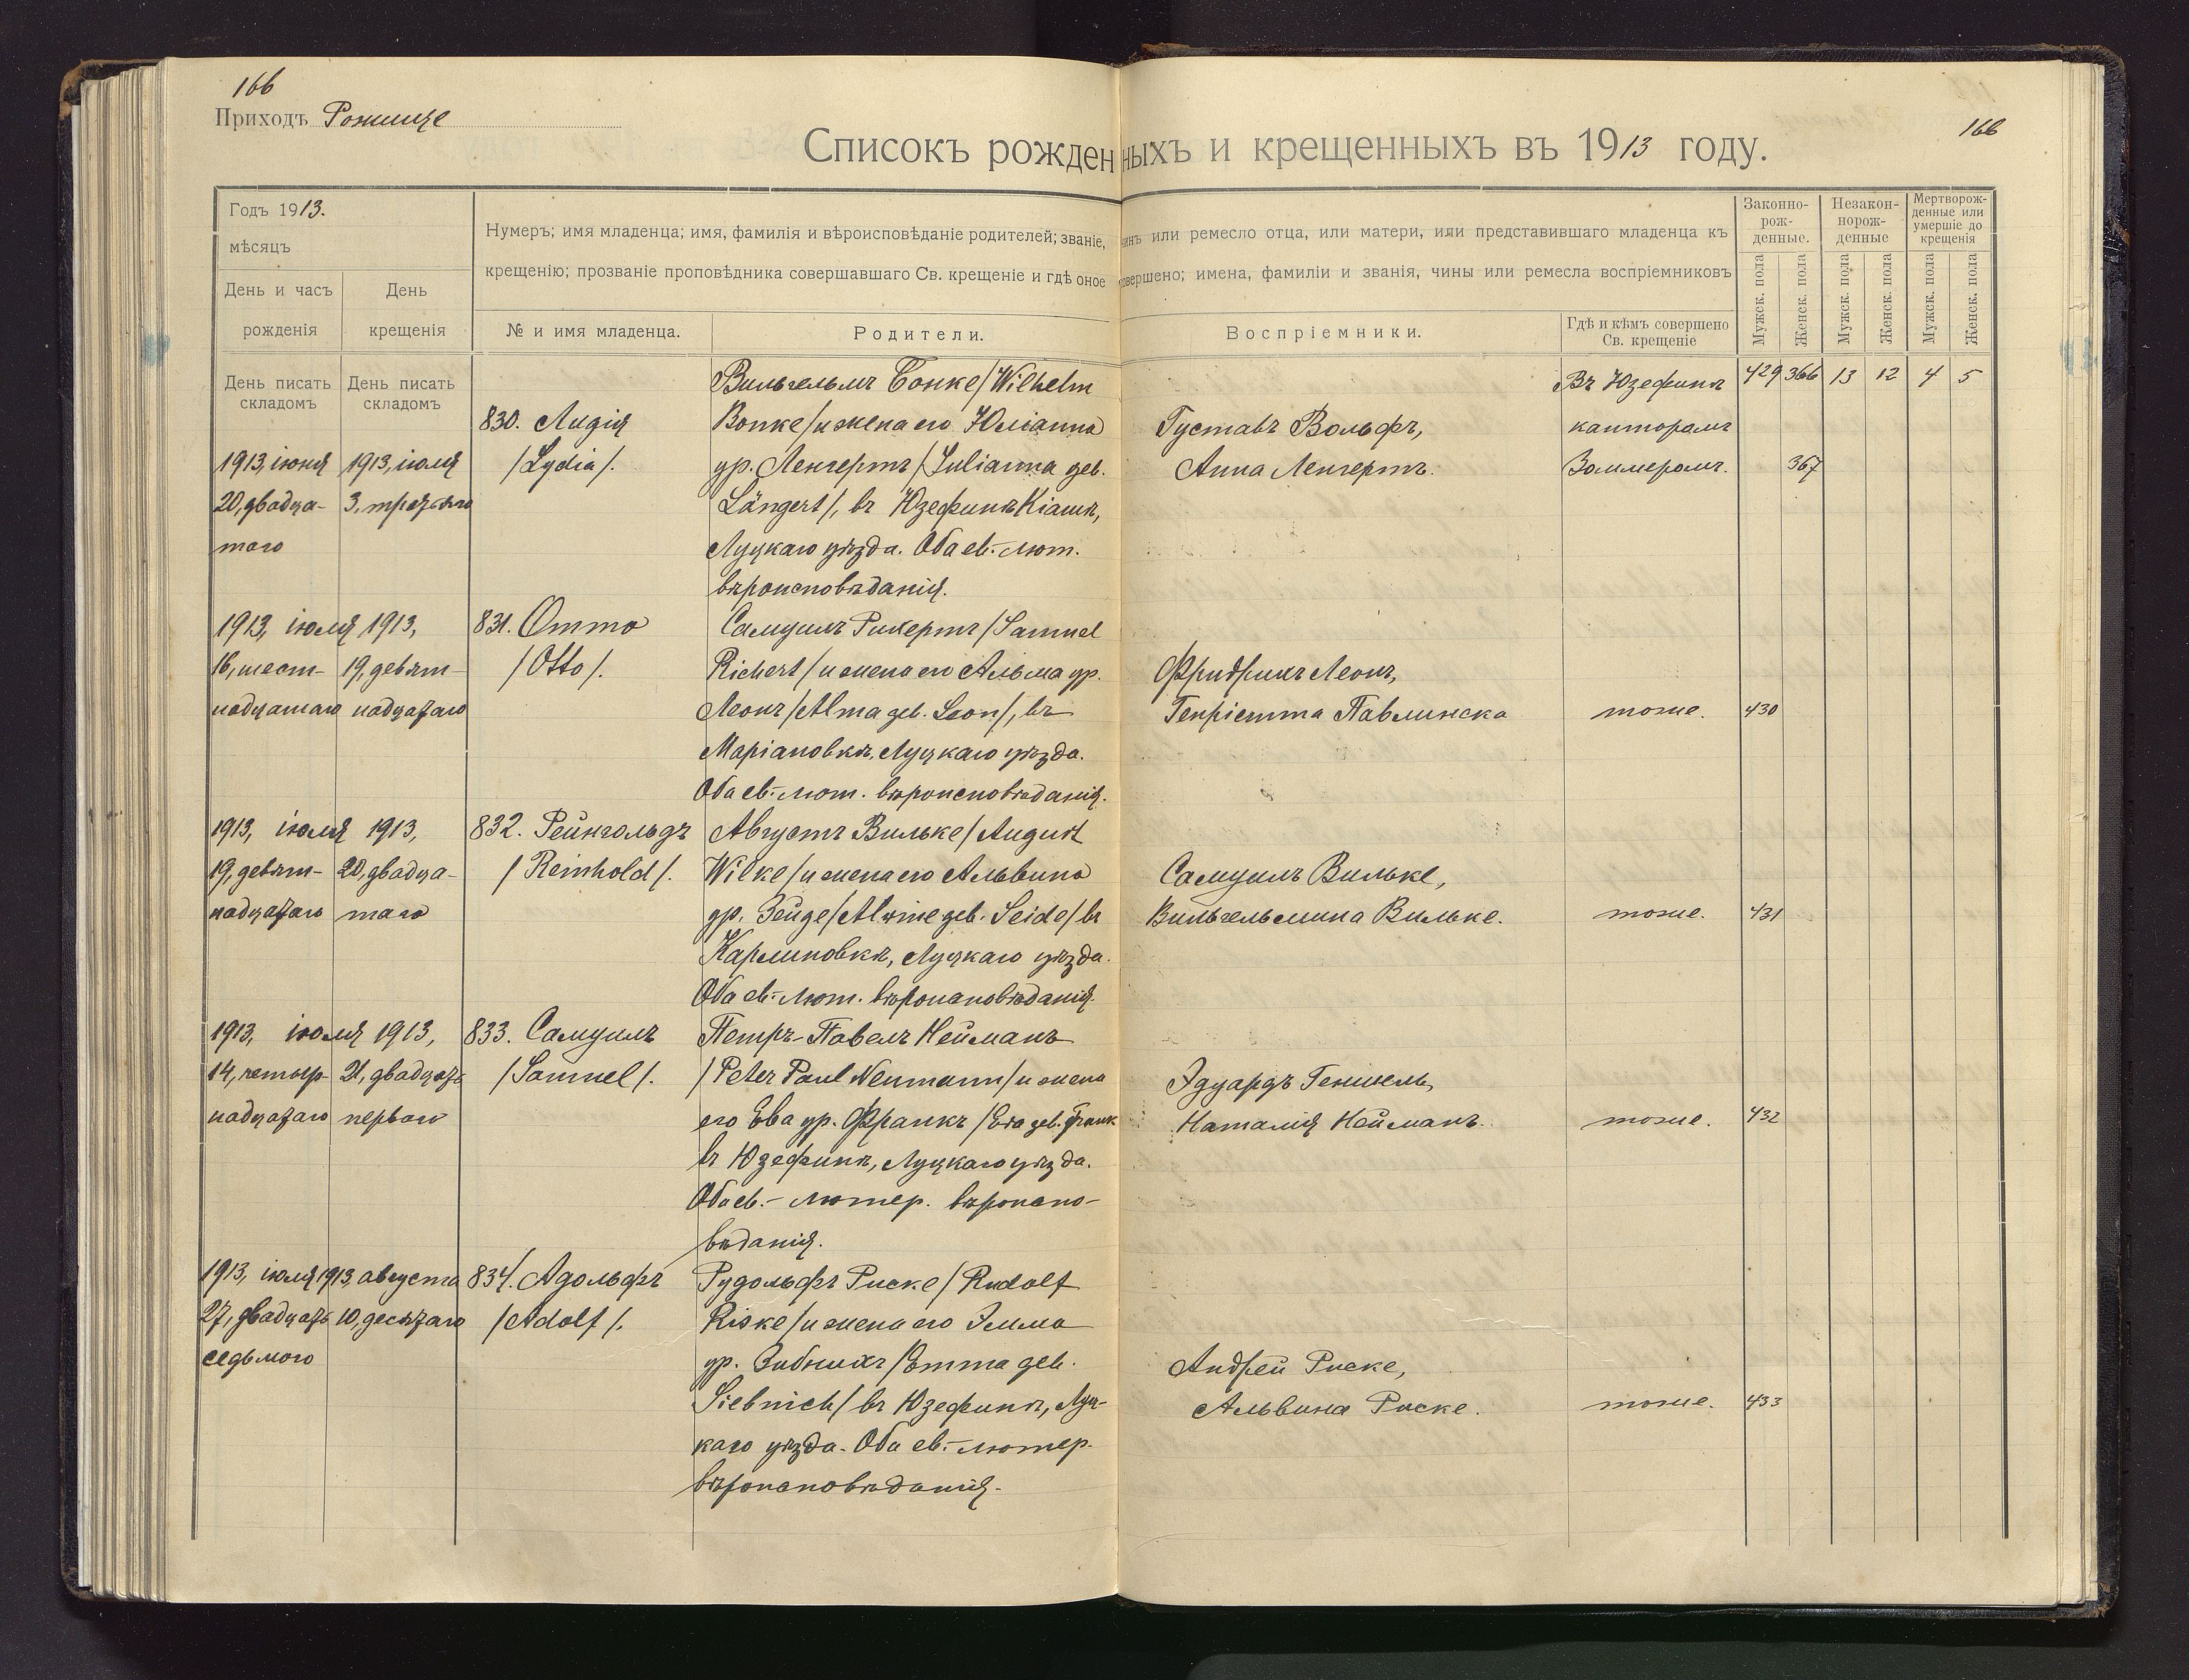 166
Приходъ Рожище
166
Списокъ рожденныхъ и крещенныхъ въ 1913 году.
Годъ 1913.
мѣсяцъ
День и часъ рожденія
День крещенія
Нумеръ; имя младенца; имя, фамилія и вѣроисповѣданіе родителей; званіе, чинъ или ремесло отца, или матери, или представившаго младенца къ
крещенію; прозваніе проповѣдника совершавшаго Св. крещеніе и гдѣ оное совершено; имена, фамиліи и званія, чины или ремесла воспріемниковъ
№ и имя младенца.
Родители.
Воспріемники.
Гдѣ и кѣмъ совершено
Св. крещеніе
Законно-
рож-
денные.
Незакон-
норож-
денные
Мертворож-
денные или
умершіе до
крещенія
Мужск. пола
Женск. пола
Мужск. пола
Женск. пола
Мужск. пола
Женск. пола
День писать
складомъ
День писать
складомъ
429 366 13 12 4 5
1913, іюня
20, двадца-
таго
1913, іюля
3, третьяго
830. Лидія
/Lydia/.
Вильгельмъ Бонке /Wilhelm
Bonke/ и жена его Юліанна
ур. Ленгертъ /Julianna geb.
Längert/, въ Юзефинѣ Кіашѣ,
Луцкаго уѣзда. Оба ев.-лют.
вѣроисповѣданія.
Густавъ Вольфъ,
Анна Ленгертъ.
Въ Юзефинѣ
канторомъ
Зоммеромъ.
367
1913, іюля
16, шест-
надцатаго
1913,
19, девят-
надцатаго
831. Отто
/Otto/.
Самуилъ Рихертъ /Samuel
Richert/ и жена его Альма ур.
Леонъ /Alma geb. Leon/, въ
Маріановкѣ, Луцкаго уѣзда.
Оба ев.-лют. вѣроисповѣданія.
Фридрихъ Леонъ,
Генріетта Павлинска
тоже.
430
1913, іюля
19, девят-
надцатаго
1913,
20, двадца-
таго
832. Рейнгольдъ
/Reinhold/.
Августъ Вильке /August
Wilke/ и жена его Альвина
ур. Зейде /Alwine geb. Seide/ въ
Карлиновкѣ, Луцкаго уѣзда.
Оба ев.-лют. вѣроисповѣданія.
Самуилъ Вильке,
Вильгельмина Вильке.
тоже.
431
1913, іюля
14, четыр-
надцатаго
1913,
21, двадцать
перваго
833. Самуилъ
/Samuel/.
Петръ-Павелъ Нейманъ
/Peter Paul Neumann/ и жена
его Ева ур. Франкъ /Eva geb. Frank
въ Юзефинѣ, Луцкаго уѣзда.
Оба ев.-лютер. вѣроиспо-
вѣданія.
Эдуардъ Геншель,
Наталія Нейманъ.
тоже.
432
1913, іюля
27, двадцать
седьмого
1913, августа
10, десятаго
834. Адольфъ
/Adolf/.
Рудольфъ Риске /Rudolf
Riske/ и жена его Эмма
ур. Зибнихъ /Emma geb.
Siebnich/ въ Юзефинѣ, Луц-
каго уѣзда. Оба ев.-лютер.
вѣроисповѣданія.
Андрей Риске,
Альвина Риске.
тоже.
433